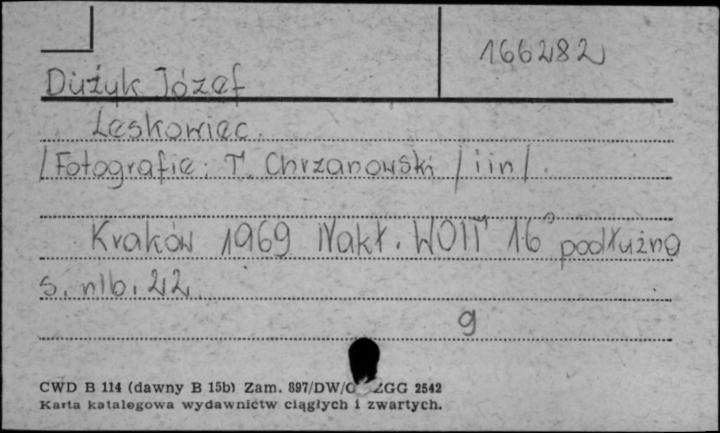 166282
Dużyk Józef
Leskowiec.
/Fotografie: T. Chrzanowski /iin/.
Kraków 1969 Nakł. WOIT 16° podłużna
s. nlb. 22
g
CWD B 114 (dawny B 15b) Zam. 897/DW/ ZGG 2542
Karta katalogowa wydawnictw ciągłych i zwartych.